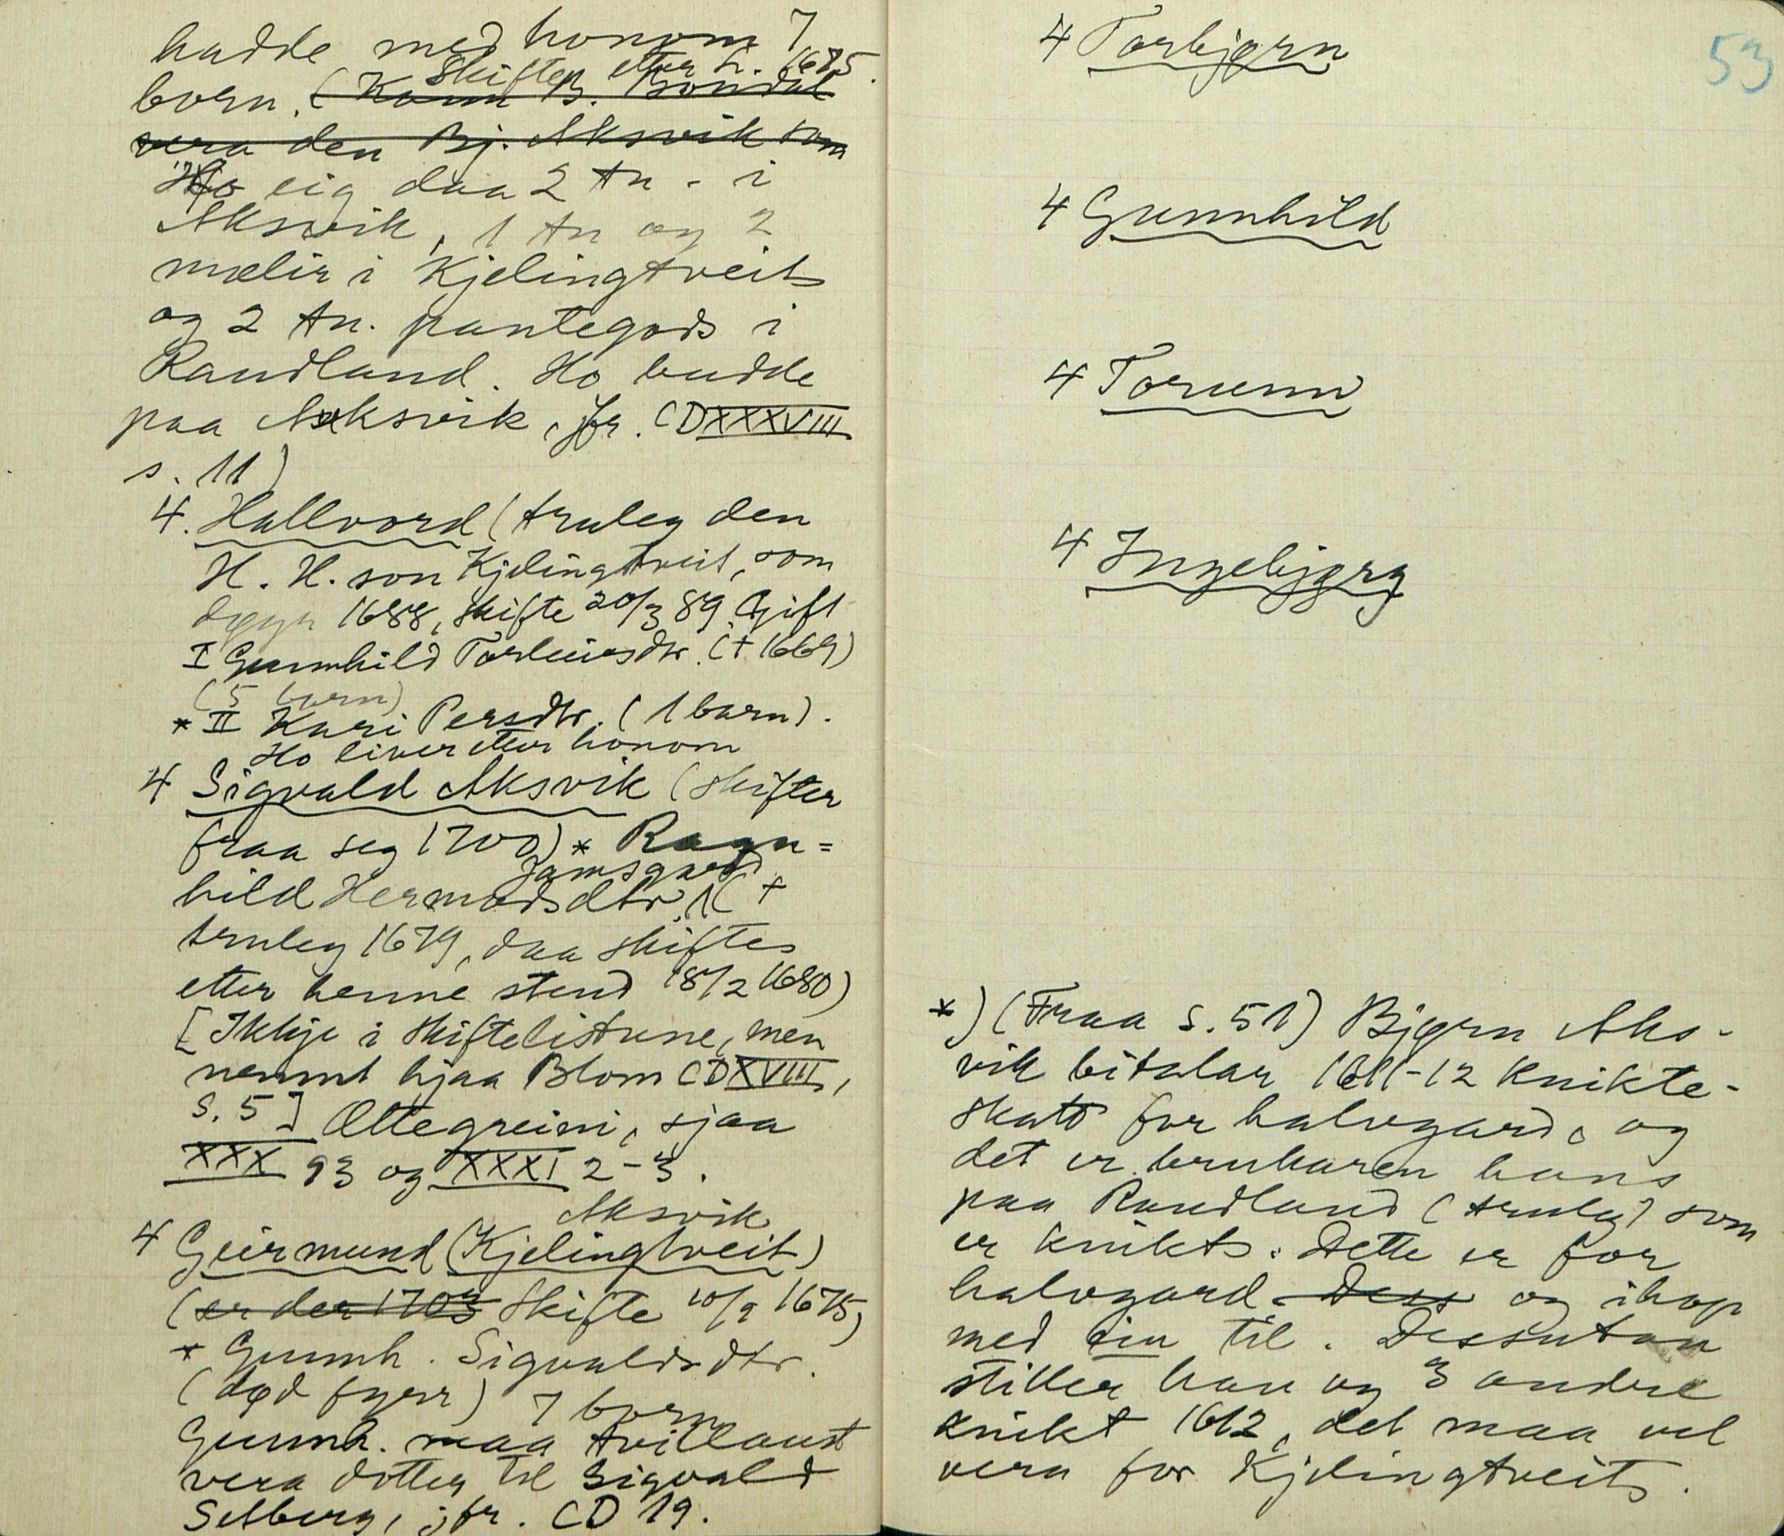 hadde med honom 7
Skifte etter h. 1675.
born. (Kann B. Bondal
vera den Bj. Aksvik som
Ho eig daa 2 tn. i
Aksvik, 1 tn og 2
mælir i Kjelingtveit
og 2 tn. pantegods i
Randland. Ho budde
paa Aksvik, jfr. CD XXXVIII
s. 11)
4. Hallvord (truleg den
H. H. son Kjelingtveit, som
døyr 1688, skifte 20/3 89. Gift
I Gunnhild Torleivsdtr. († 1669)
(5 born)
* II Kari Persdtr. (1 barn).
Ho liver etter honom
4 Sigvald Aksvik (skifter
fraa seg 1700) * Ragn=
Jamsgard
hild Hermodsdtr. (†
truleg 1679, daa skiftes
etter henne stend 18/2 1680)
[Ikkje i skiftelistune, men
nemnt hjaa Blom CD XVIII,
s. 5] Ættegreini, sjaa
XXX 93 og XXXI 2-3.
Aksvik
4 Geirmund (Kjelingtveit)
(er der 1703 Skifte 10/9 1675)
* Gunnh. Sigvaldsdtr.
(død fyrr) 7 born
Gunnh. maa tvillaust
vera dotter til Sigvald
Selberg, jfr. CD 19.
53
4 Torbjørn
4 Gunnhild
4 Torunn
4 Ingebjørg
*) (Fraa s. 51) Bjørn Aks-
vik bitalar 1611-12 knikte-
skatt for halvgard, og
det er brukaren hans
paa Randland (truleg) som
er knikt. Dette er for
halvgard. Dess og ihop
med ein til. Dessutan
stiller han og 3 andre
knikt 1612, det maa vel
vera for Kjelingtveit.